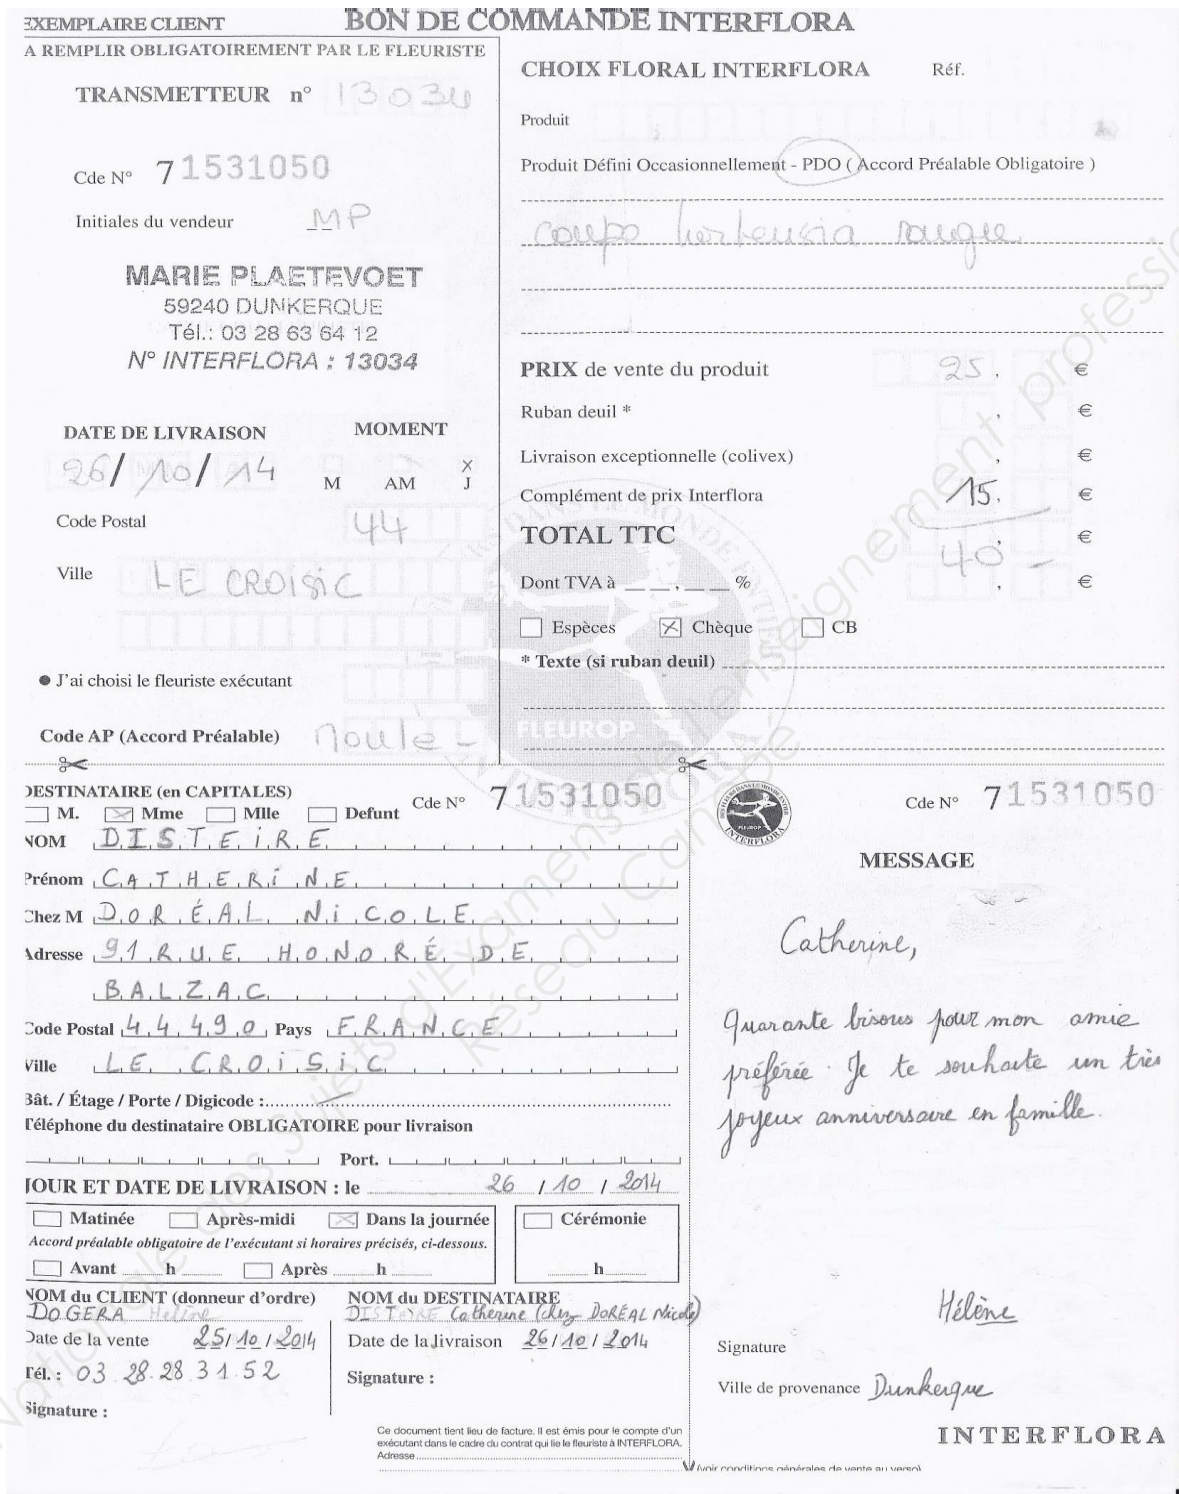 EXEMPLAIRE CLIENT
BON DE COMMANDE INTERFLORA
A REMPLIR OBLIGATOIREMENT PAR LE FLEURISTE
TRANSMETTEUR n° 13034
Cde N° 71531050
Initiales du vendeur MP
MARIE PLAETEVOET
59240 DUNKERQUE
Tél.: 03 28 63 64 12
N° INTERFLORA : 13034
DATE DE LIVRAISON MOMENT
26/10/14 X
M AM J
Code Postal 44
Ville LE CROISIC
● J'ai choisi le fleuriste exécutant
Code AP (Accord Préalable)
CHOIX FLORAL INTERFLORA Réf.
Produit
Produit Défini Occasionnellement - PDO ( Accord Préalable Obligatoire )
coupe hortensia rouge
PRIX de vente du produit 25, €
Ruban deuil * , €
Livraison exceptionnelle (colivex) , €
Complément de prix Interflora 15. €
TOTAL TTC 40 - €
Dont TVA à __,__ % , €
Espèces X Chèque CB
* Texte (si ruban deuil)
FLEUROP
DESTINATAIRE (en CAPITALES) Cde N° 71531050
M. X Mme Mlle Defunt
NOM DISTEIRE
Prénom CATHERINE
Chez M DORÉAL NICOLE
Adresse 91 RUE HONORÉ DE
BALZAC
Code Postal 44490 Pays FRANCE
Ville LE CROISIC
Bât. / Étage / Porte / Digicode :
Téléphone du destinataire OBLIGATOIRE pour livraison
Port.
JOUR ET DATE DE LIVRAISON : le 26 / 10 / 2014
Matinée Après-midi X Dans la journée Cérémonie
Accord préalable obligatoire de l'exécutant si horaires précisés, ci-dessous.
Avant h Après h h
NOM du CLIENT (donneur d'ordre) NOM du DESTINATAIRE
DOGERA Hélène DISTEIRE Catherine (chez DORÉAL Nicole)
Date de la vente 25/10/2014 Date de la livraison 26/10/2014
Tél. : 03 28.28.31.52 Signature :
Signature :
Ce document tient lieu de facture. Il est émis pour le compte d'un
exécutant dans le cadre du contrat qui lie le fleuriste à INTERFLORA.
Adresse
Cde N° 71531050
FLEUROP
INTERFLORA
MESSAGE
Catherine,
Quarante bisous pour mon amie
préférée. Je te souhaite un très
joyeux anniversaire en famille.
Hélène
Signature
Ville de provenance Dunkerque
INTERFLORA
(voir conditions générales de vente au verso)